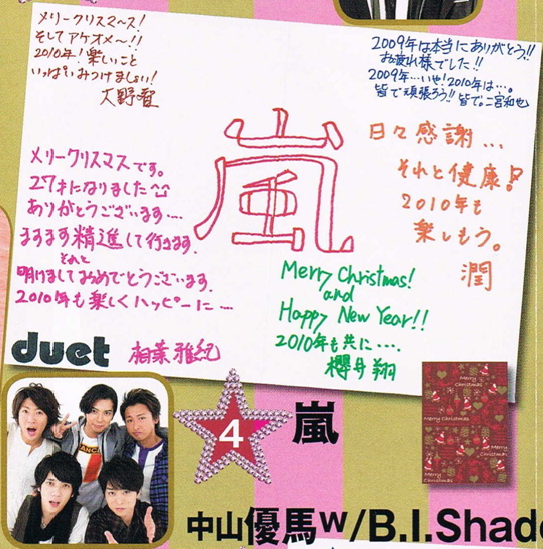 メリークリスマ〜ス!
そしてアケオメ〜!!
2010年!楽しいこと
いっぱいみつけましょい!
大野智
2009年は本当にありがとう!!
お疲れ様でした!!
2009年…いや!2010年は…。
皆で頑張ろう!!皆で。二宮和也
嵐
日々感謝...
それと健康!
2010年も
楽しもう。
潤
メリークリスマスです。
27才になりました
ありがとうございます....
ますます精進して行きます.
それと
明けましておめでとうございます.
2010年も楽しくハッピーに...
相葉雅紀
Merry Christmas!
and
Happy New Year!!
2010年も共に....
櫻井翔
duet
4
嵐
Merry Christmas
中山優馬w/B.I.Shado